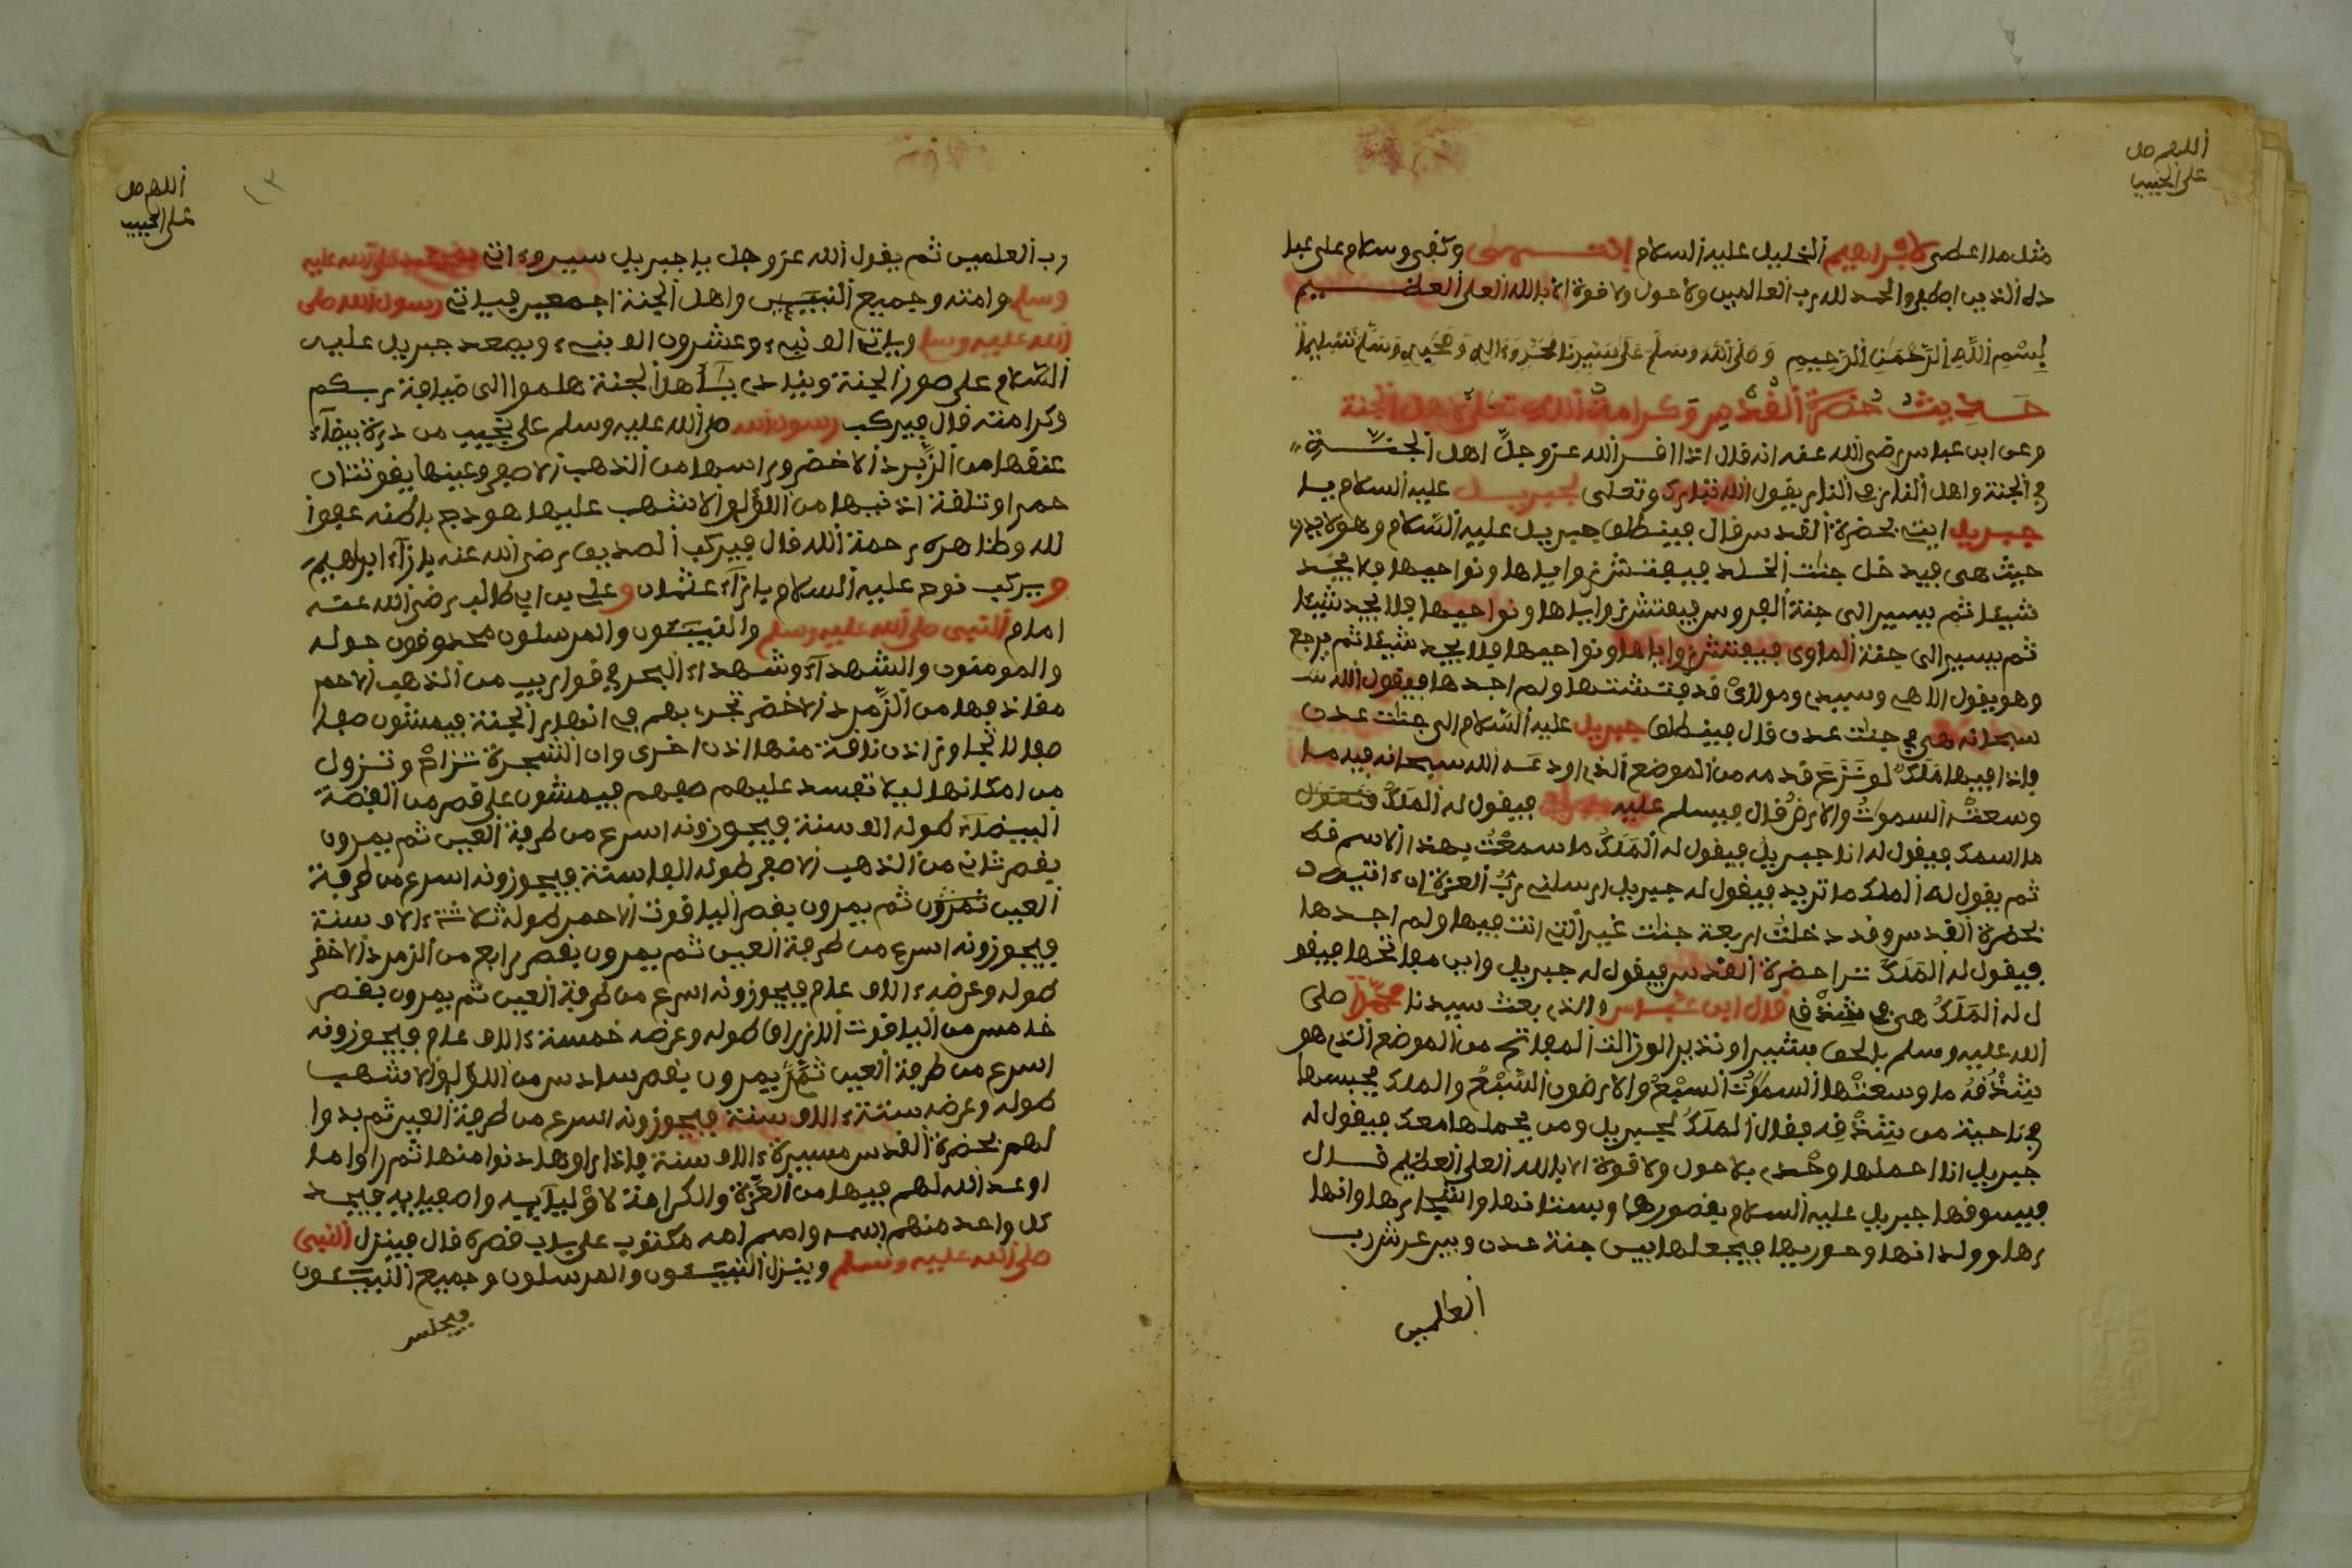 اللهم صل
على الحبيب
مثل ما اعطى لابراهيم الخليل عليه السلام انتهى وكفى وسلام على عبا
ده الذين اصطفى والحمد لله رب العالمين ولا حول ولا قوة الا بالله العلي العظيم
بسم الله الرحمن الرحيم وصلى الله وسلم على سيدنا محمد وءاله وصحبه وسلم تسليما
حديث حضرة القدس وكرامة الله تعلى لاهل الجنة
وعن ابن عباس رضى الله عنه انه قال اذا افر الله عز وجل اهل الجنة
في الجنة واهل النار في النار يقول الله تبارك وتعلى لجبريل عليه السلام يا
جبريل ايت بحضرة القدس قال فينطلق جبريل عليه السلام وهو لا يدرى
حيث هى فيدخل جنات الخلد فيفتش زواياها ونواحيها فلا يجد
شيئا ثم يسير الى جنة الفردوس فيفتش زواياها ونواحيها فلا يجد شيئا
ثم يسير الى جنة الماوى فيفتش زواياها ونواحيها فلا يجد شيئا ثم يرجع
وهو يقول الاهى وسيدى ومولاى قد فتشتها ولم اجدها فيقول الله
سبحانه هى في جنات عدن قال فينطلق جبريل عليه السلام الى جنات عدن
فاذا فيها ملك لو نزع قدمه من الموضع الذى اودعه الله سبحانه فيه ما
وسعته السموات والارض قال فيسلم عليه جبريل فيقول له الملك
ما اسمك فيقول له انا جبريل فيقول له الملك ما سمعت بهذا الاسم قط
ثم يقول له الملك ما تريد فيقول له جبريل ارسلنى رب العزة ان ءاتيه
بحضرة القدس وقد دخلت اربعة جنات غير التى انت فيها ولم اجدها
فيقول له الملك ترا حضرة القدس فيقول له جبريل واين مفاتحها فيقو
ل له الملك هى في شذقى قال ابن عباس والذى بعث سيدنا محمدا صلى
الله عليه وسلم بالحق بشيرا ونذيرا لو زالت المفاتح من الموضع الذى هو
شذقه ما وسعتها السموات السبع والارضون السبع والملك يحبسها
في ناحية من شذقه فقال الملك لجبريل ومن يحملها معك فيقول له
جبريل انا احملها وحدى بلا حول ولا قوة الا بالله العلي العظيم قال
فيسوقها جبريل عليه السلام بقصورها وبستانها واشجارها وانها
رها وولدانها وحوريها فيجعلها بين جنة عدن وبين عرش رب
العالمين
اللهم صل
على الحبيب
١٣
رب العلمين ثم يقول الله عز وجل يا جبريل سير وءات بمحمد صلى الله عليه
وسلم وامته وجميع النبيين واهل الجنة اجمعين فياتى رسول الله صلى
الله عليه وسلم وياتى الف نبىء وعشرون الف نبىء ويصعد جبريل عليه
السلام على صور الجنة وينادى يا اهل الجنة هلموا الى ضيافة ربكم
وكرامته قال فيركب رسول الله صلى الله عليه وسلم على نجيب من درة بيضاء
عنقها من الزبرد الاخضر وراسها من الذهب الاصفر وعينها ياقوتتان
حمراوتان فة اذنيها من اللؤلؤ الاشهب عليها هودج باطنه عفوا
لله وظاهره رحمة الله قال فيركب الصديق رضى الله عنه بازاء ابراهيم
ويركب نوح عليه السلام بازاء عثمان وعلي بن ابي طالب رضى الله عنه
امام النبى صلى الله عليه وسلم والنبيئون والمرسلون محدقون حوله
والمومنون والشهداء وشهداء البحر في قواريب من الذهب الاحمر
مقاذفها من الزمرد الاخضر تجرى بهم في انهار الجنة فيمشون صفا
صفا لا تجاوز اذن ناقة منها اذن اخرى وان الشجرة تزام وتزول
من امكانها ليلا تفسد عليهم صفهم فيمشون على قصر من الفضة
البيضاء طوله الف سنة فيجوزونه اسرع من طرفة العين ثم يمرون
بقصر ثانى من الذهب الاصفر طوله الفا سنة فيجوزونه اسرع من طرفة
العين ثم يمرون بقصر الياقوت الاحمر طوله ثلاثة ءالاف سنة
فيجوزونه اسرع من طرفة العين ثم يمرون بقصر رابع من الزمرد الاخضر
طوله وعرضه ءالاف عام فيجوزونه اسرع من طرفة العين ثم يمرون بقصر
خامس من الياقوت الازرق طوله وعرضه خمسة ءالاف عام فيجوزونه
اسرع من طرفة العين ثم يمرون بقصر سادس من اللؤلؤ الاشهب
طوله وعرضه ستة ءالاف سنة فيجوزونه اسرع من طرفة العين ثم بدوا
لهم بحضرة القدس مسيرة ءالاف سنة فاذا راوها دنوا منها ثم راوا ما
اوعد الله لهم فيها من العزة والكرامة لاوليآيه واصفيايه فيجد
كل واحد منهم اسمه واسم امه مكتوب على باب قصره قال فينزل النبى
صلى الله عليه وسلم وينزل النبيئون والمرسلون وجميع النبيئون
فيجلس